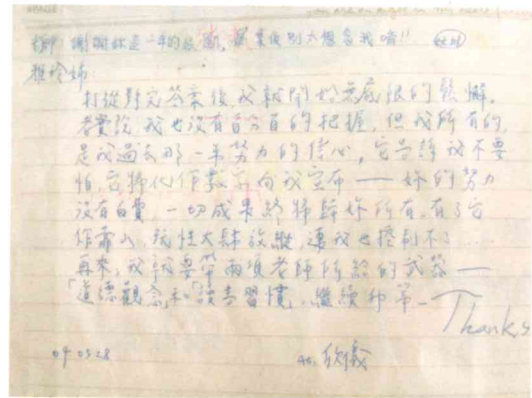 謝謝妳這一年的教導，畢業後別太想念我唷!!
雅玲姊
打從對完答案後我就開始無底限的鬆懈。
老實說，我也沒有百分百的把握，但我所有的，
是我過去那一年努力的信心，它告訴我不要
怕，它將化作數字向我宣布——妳的努力
沒有白費，一切成果終將歸妳所有。有了它
作靠山，我性大肆放縱，連我也控制不了…
再來，我就要帶兩項老師所給的武器——
「道德觀念」和「讀書習慣」，繼續
Thanks
090528
欣儀